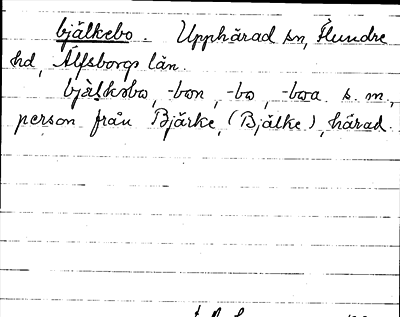 bjälkebo. Upphärad sn, Flundre
hd, Älfsborgs län.
bjälkəbo, -bon, -bo, -boa s. m.,
person från Bjärke, (Bjälke), härad.